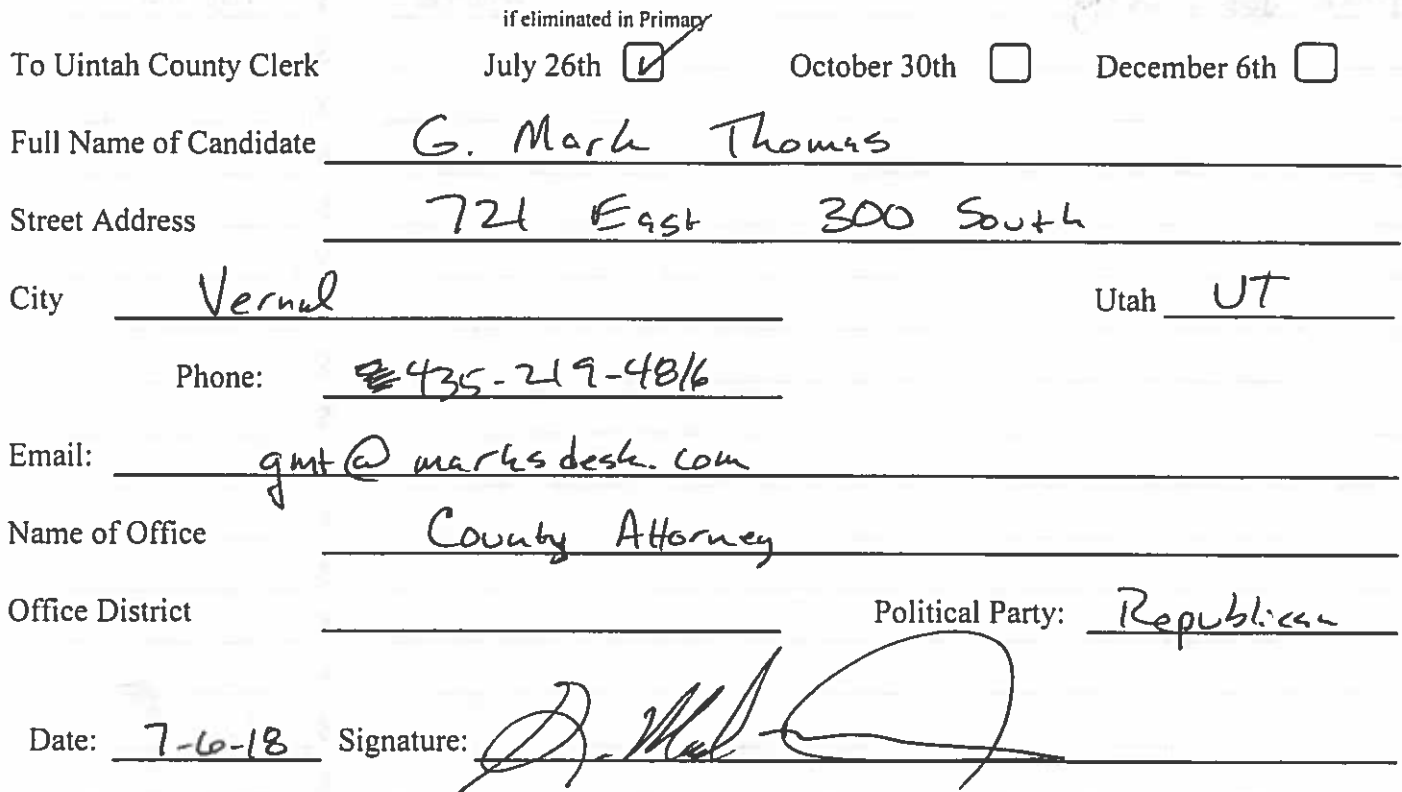 if eliminated in Primary
To Uintah County Clerk July 26th October 30th December 6th
Full Name of Candidate G. Mark Thomas
Street Address 721 East 300 South
City Vernal Utah UT
Phone: 435-219-4816
Email: gmt@marksdesk.com
Name of Office County Attorney
Office District Political Party: Republican
Date: 7-6-18 Signature: G. Mark